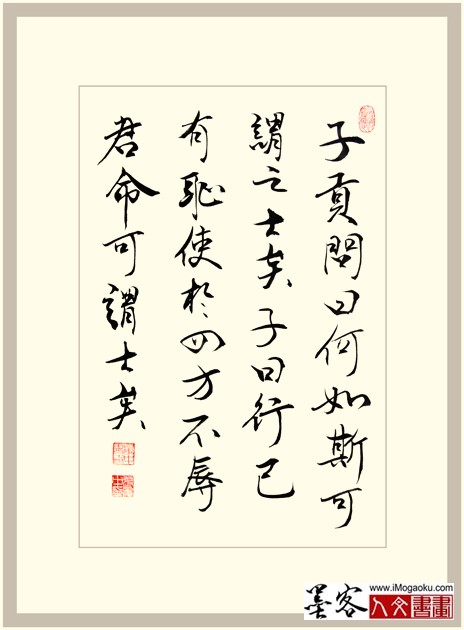 子貢問曰何如斯可
謂之士矣子曰行己
有恥使於四方不辱
君命可謂士矣
墨客
www.iMogaoku.com
人文書畫